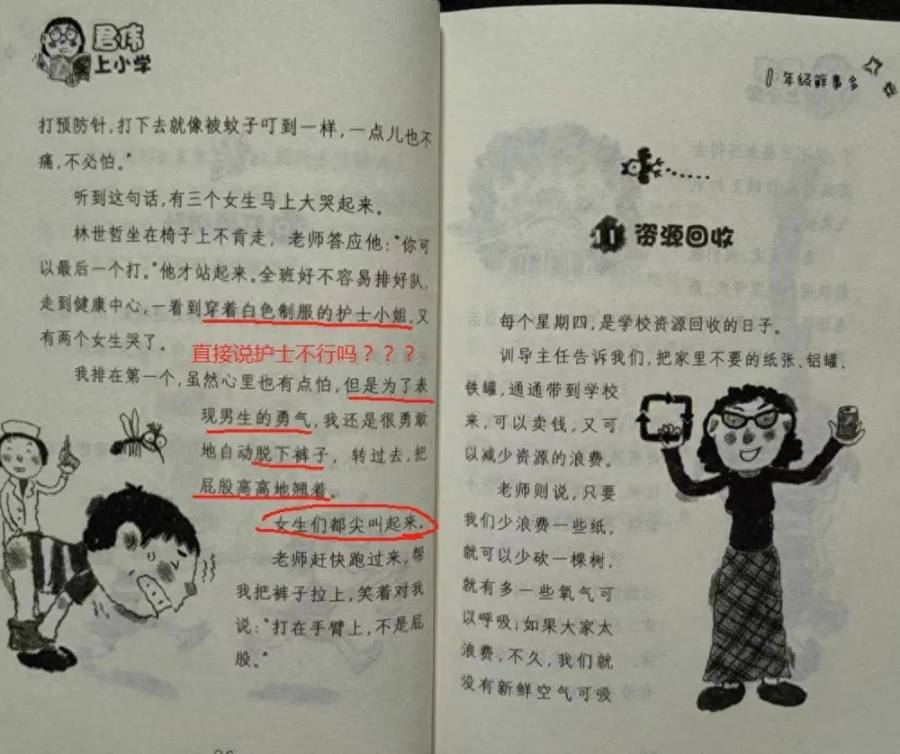 君伟
上小学
打预防针，打下去就像被蚊子叮到一样，一点儿也不
痛，不必怕。”
听到这句话，有三个女生马上大哭起来。
林世哲坐在椅子上不肯走，老师答应他：“你可
以最后一个打。”他才站起来。全班好不容易排好队，
走到健康中心，一看到穿着白色制服的护士小姐，又
有两个女生哭了。
直接说护士不行吗？？？
我排在第一个，虽然心里也有点怕，但是为了表
现男生的勇气，我还是很勇敢
地自动脱下裤子，转过去，把
屁股高高地翘着。
女生们都尖叫起来。
老师赶快跑过来，帮
我把裤子拉上，笑着对我
说：“打在手臂上，不是屁
股。”
年级鲜事多
11 资源回收
每个星期四，是学校资源回收的日子。
训导主任告诉我们，把家里不要的纸张、铝罐、
铁罐，通通带到学校
来，可以卖钱，又可
以减少资源的浪费。
老师则说，只要
我们少浪费一些纸，
就可以少砍一棵树，
就有多一些氧气可
以呼吸；如果大家太
浪费，不久，我们就
没有新鲜空气可吸